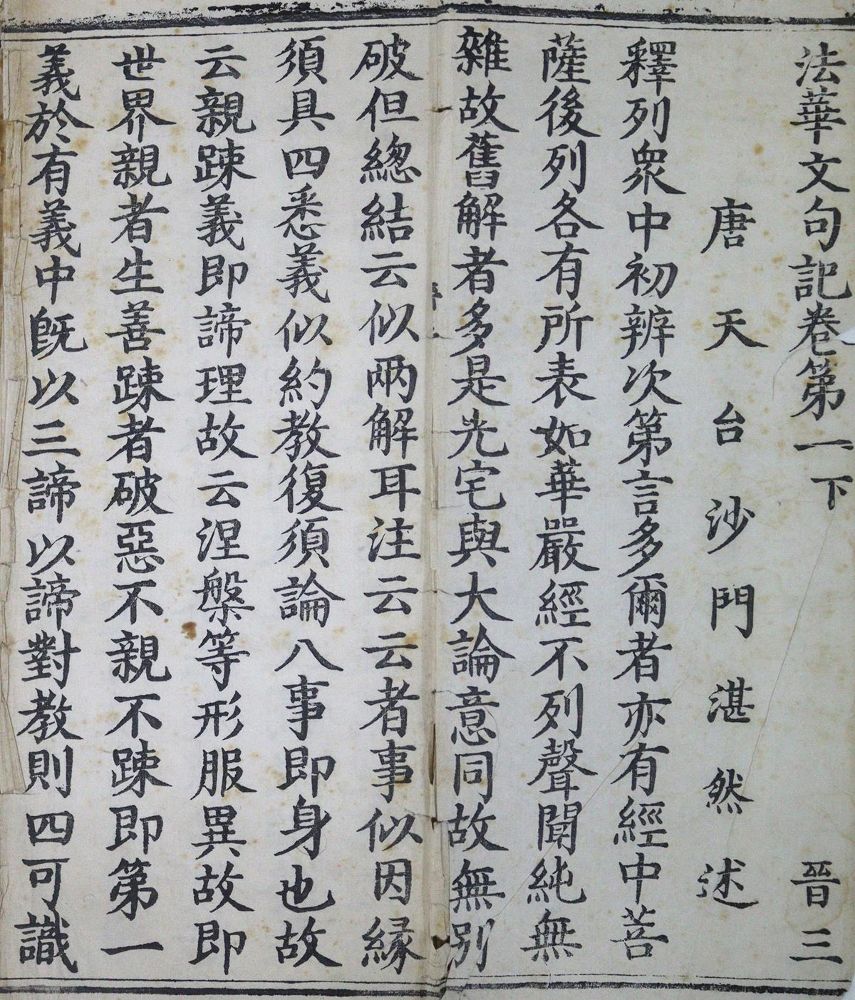 法華文句記卷第一下 晉三
唐天台沙門湛然述
釋列衆中初辨次第言多爾者亦有經中菩
薩後列各有所表如華嚴經不列聲聞純無
雜故舊解者多是光宅與大論意同故無別
破但總結云似兩解耳注云云者事似因緣
須具四悉義似約教復須論八事即身也故
云親踈義即諦理故云涅槃等形服異故即
世界親者生善踈者破惡不親不踈即第一
義於有義中旣以三諦以諦對教則四可識